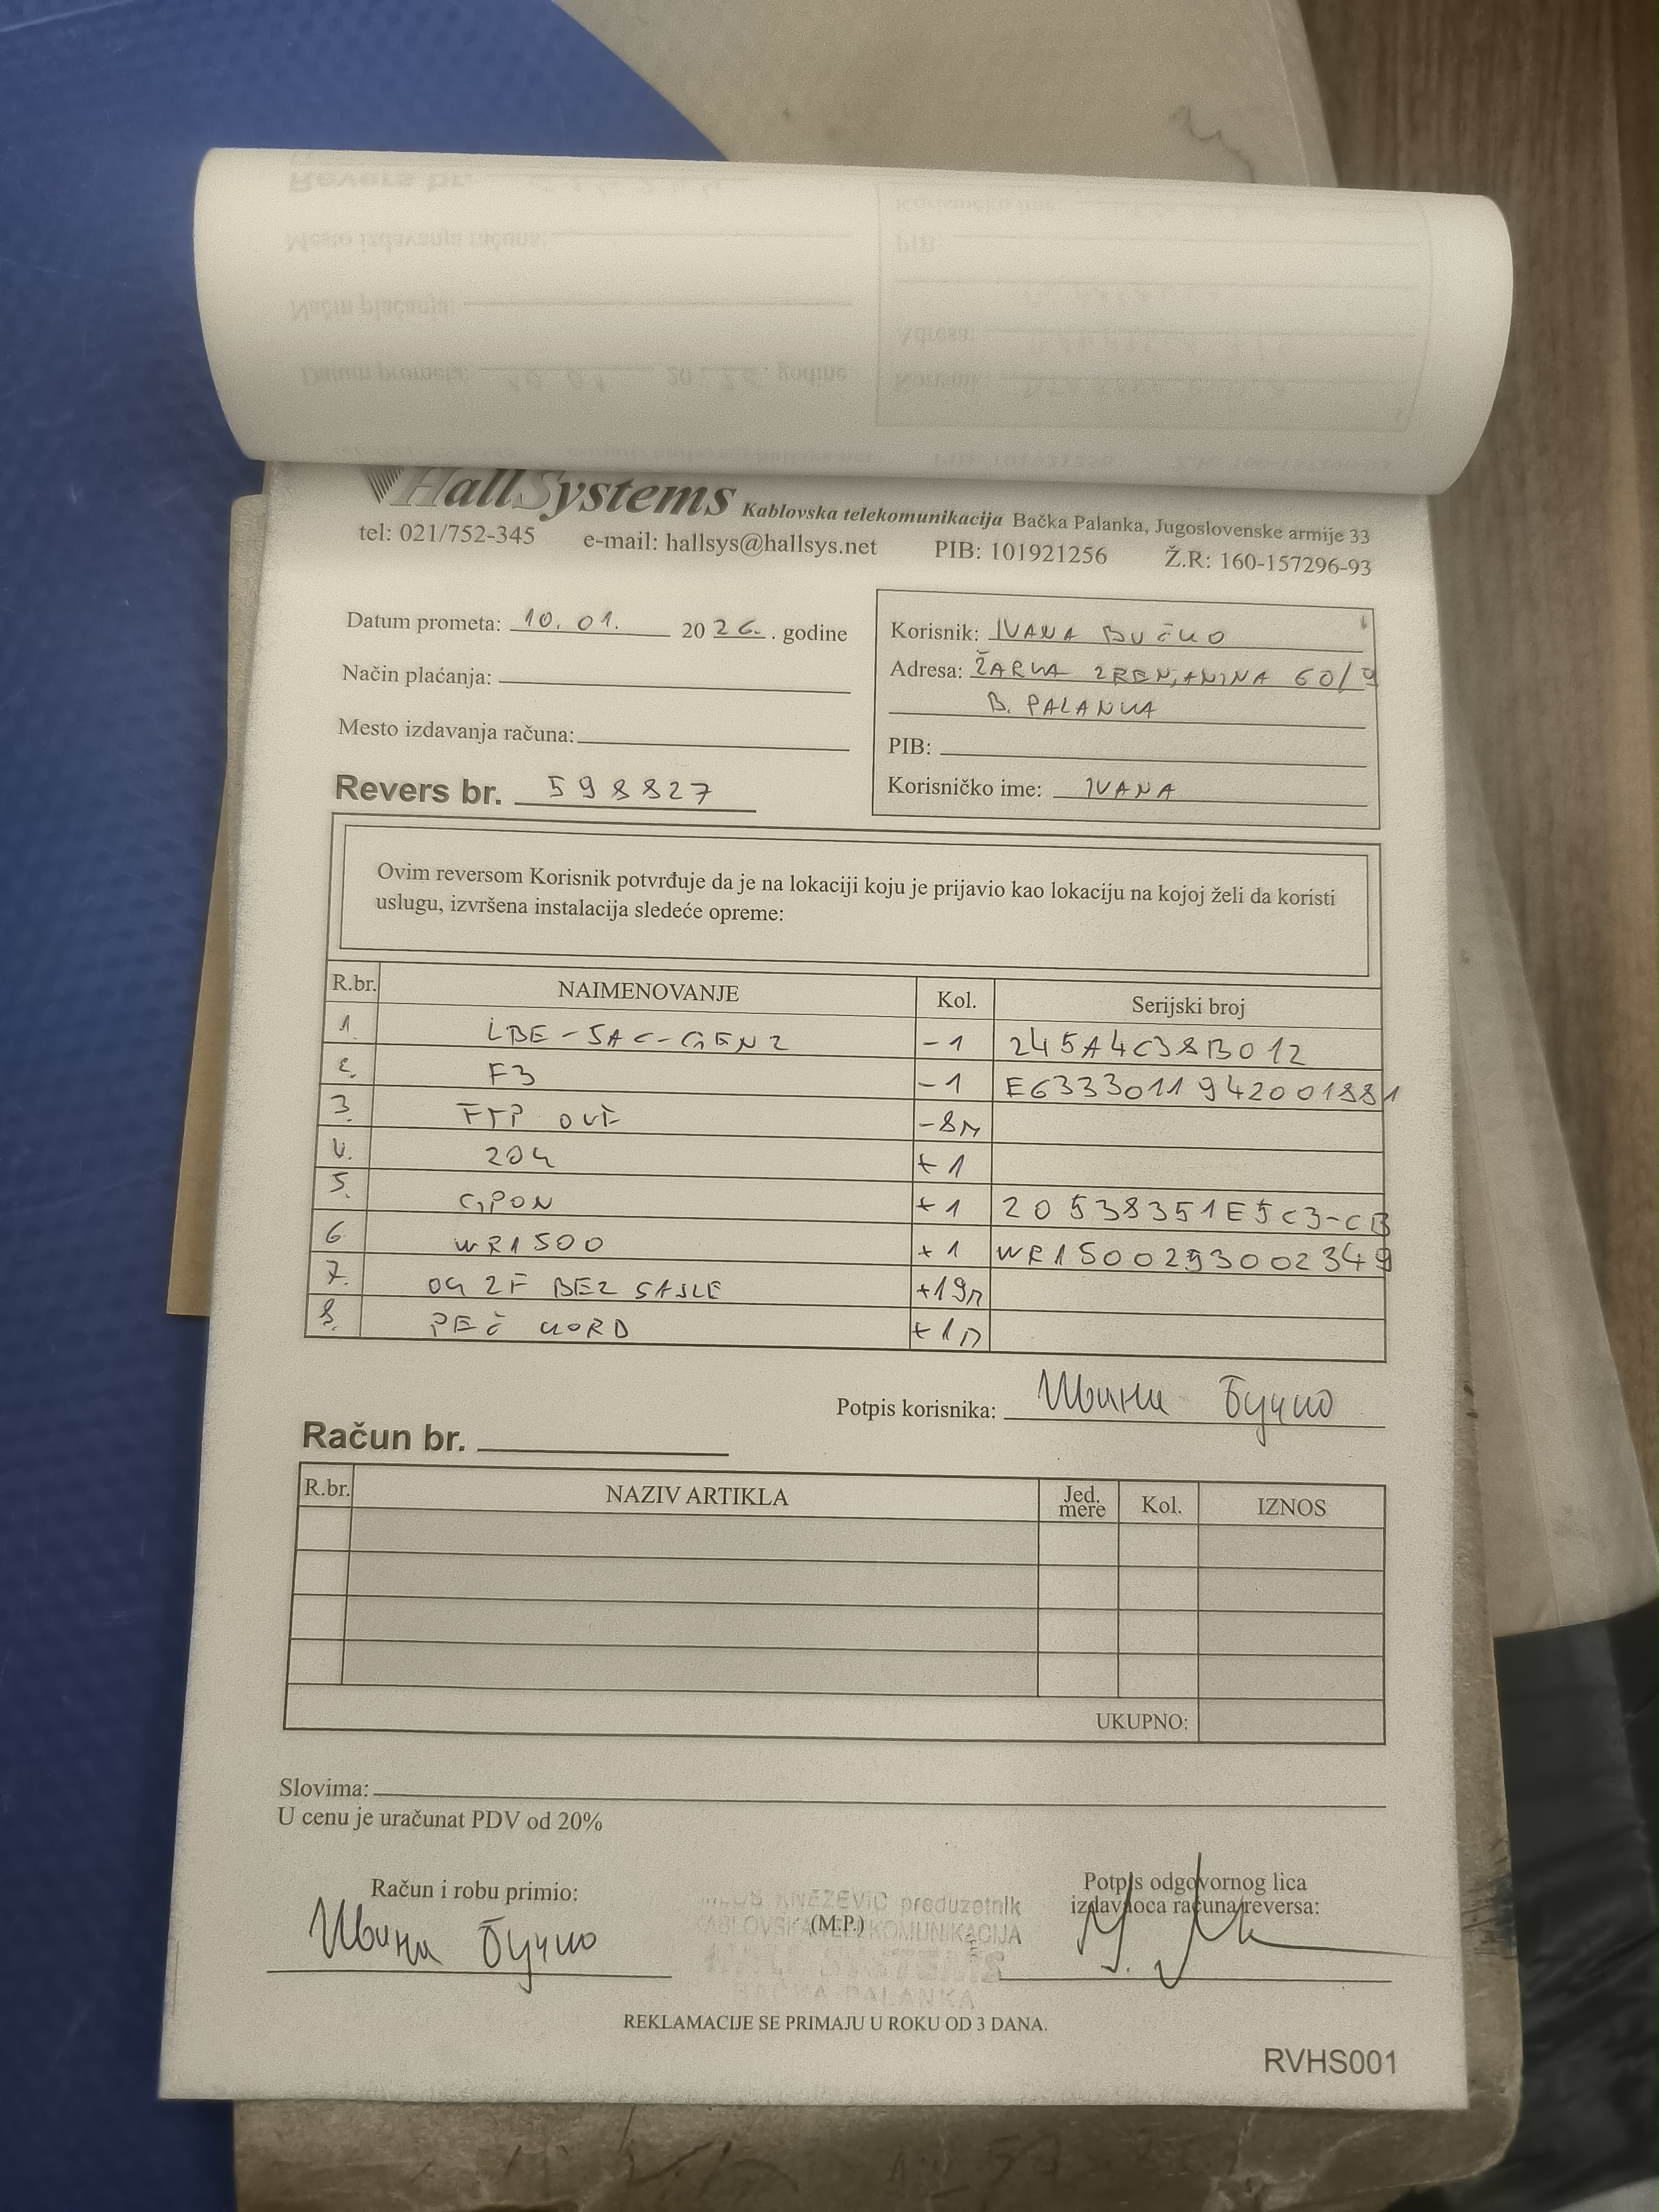 HallSystems Kablovska telekomunikacija Bačka Palanka, Jugoslovenske armije 33
tel: 021/752-345 e-mail: hallsys@hallsys.net PIB: 101921256 Ž.R: 160-157296-93
Datum prometa: 10. 01. 2026. godine
Način plaćanja:
Mesto izdavanja računa:
Revers br. 598827
Korisnik: IVANA BUČKO
Adresa: ŽARKA ZRENJANINA 60/9
B. PALANKA
PIB:
Korisničko ime: IVANA
Ovim reversom Korisnik potvrđuje da je na lokaciji koju je prijavio kao lokaciju na kojoj želi da koristi
uslugu, izvršena instalacija sledeće opreme:
R.br. NAIMENOVANJE Kol. Serijski broj
1. LBE-5AC-GEN2 -1 245A4C38B012
2. F3 -1 E6333011942001881
3. FTP OUT -8m
4. 204 +1
5. GPON +1 20538351E5C3-CB
6 WR1500 +1 WR1500293002349
7. OK 2F BEZ SAJLE +19m
8. PEČ KORD +1m
Potpis korisnika: Ивана Бучко
Račun br.
R.br. NAZIV ARTIKLA Jed. mere Kol. IZNOS
UKUPNO:
Slovima:
U cenu je uračunat PDV od 20%
Račun i robu primio:
Ивана Бучко
KNEZEVIC preduzetnik
(M.P.)
KABLOVSKA TELEKOMUNIKACIJA
HALL SYSTEMS
BAČKA PALANKA
Potpis odgovornog lica
izdavaoca računa/reversa:
REKLAMACIJE SE PRIMAJU U ROKU OD 3 DANA.
RVHS001